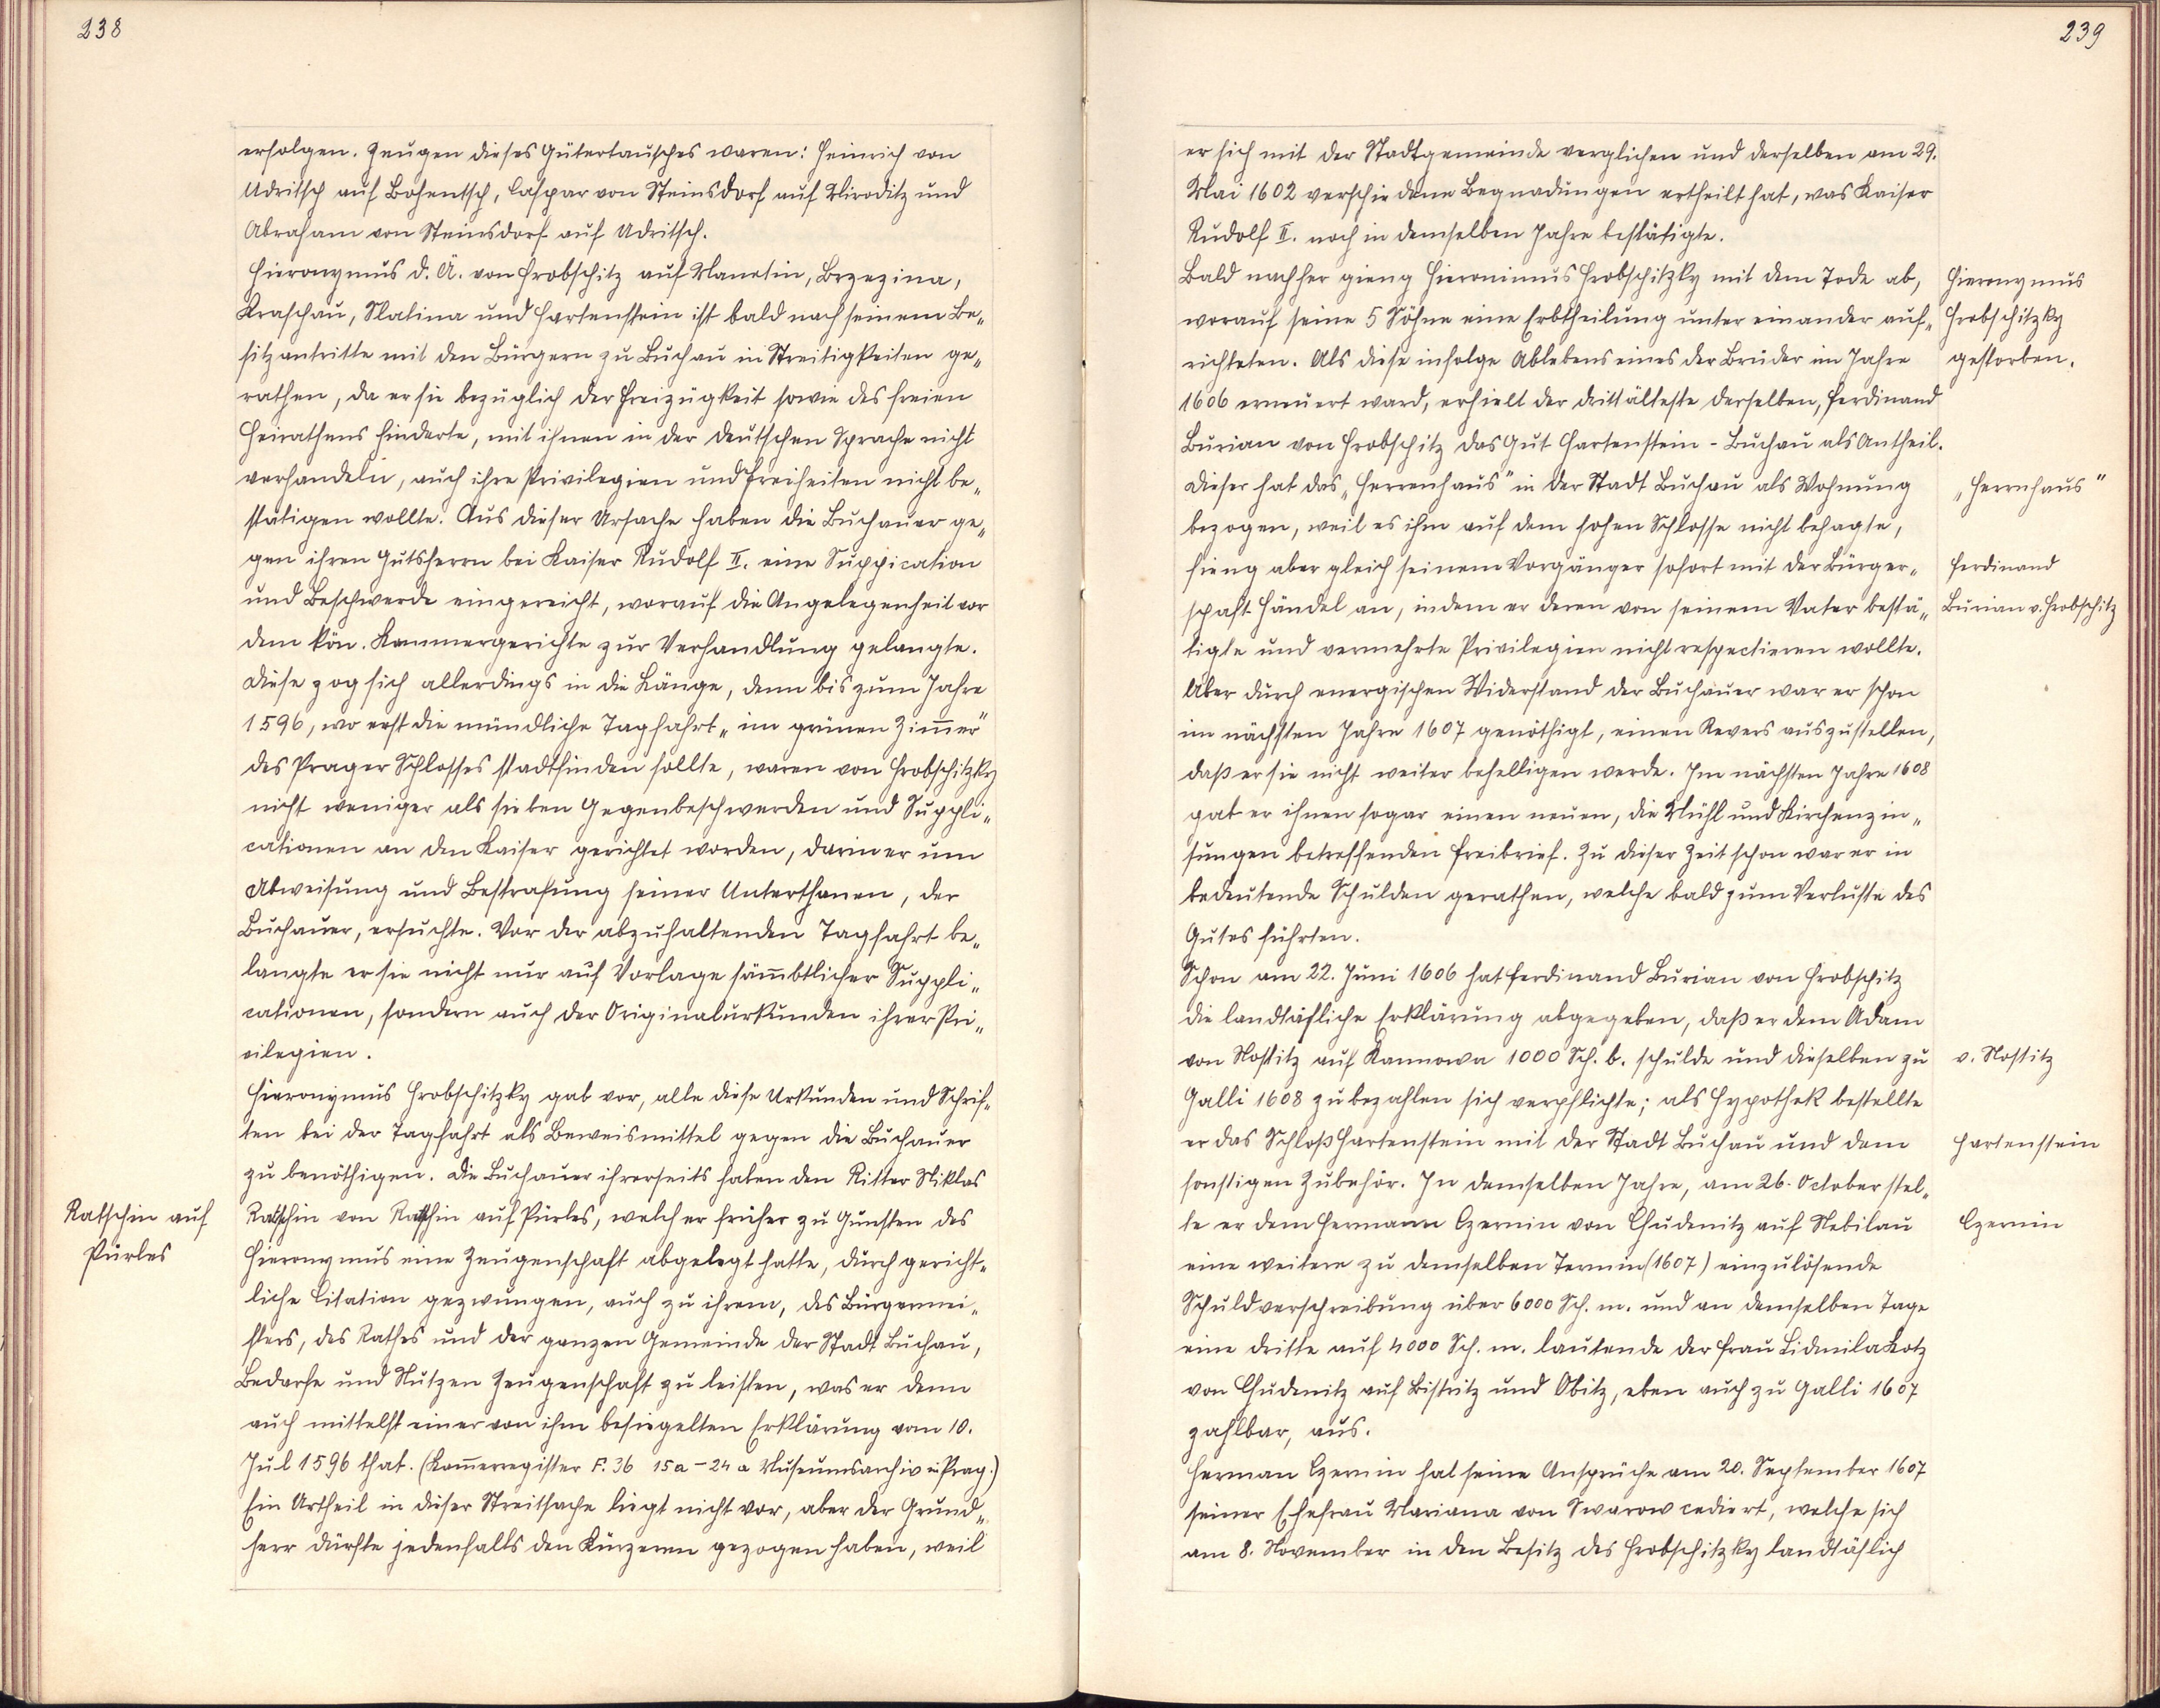 238
erfolgen. Zeugen dieses Gütertausches waren: Heinrich von
Udritsch auf Bohentsch, Caspar von Steinsdorf auf Miroditz und
Abraham von Steinsdorf auf Udritsch.
Hieronymus d. Ä. von Hrobschitz auf Manetin, Brzezina,
Kraschau, Slatina und Hartenstein ist bald nach seinem Be„
sitzantritte mit den Bürgern zu Buchau in Streitigkeiten ge„
rathen, da er sie bezüglich der Freizügkeit sowie des freien
Heirathens hinderte, mit ihnen in der deutschen Sprache nicht
verhandeln, auch ihre Privilegien und Freiheiten nicht be„
stätigen wollte. Aus dieser Ursache haben die Buchauer ge„
gen ihren Gutsherrn bei Kaiser Rudolf II. eine Suppication
und Beschwerde eingereicht, worauf die Angelegenheit vor
dem kön. Kammergerichte zur Verhandlung gelangte.
Diese zog sich allerdings in die Länge, denn bis zum Jahre
1596, wo erst die mündliche Tagfahrt „im grünen Zim̄er"
des Prager Schlosses stadtfinden sollte, waren von Hrobschitzky
nicht weniger als sieben Gegenbeschwerden und Suppli„
cationen an den Kaiser gerichtet worden, darin er um
Abweisung und Bestrafung seiner Unterthanen, der
Buchauer, ersuchte. Vor der abzuhaltenden Tagfahrt be„
langte er sie nicht nur auf Vorlage säm̄btlicher Suppli„
cationen, sondern auch der Originalurkunden ihrer Pri„
vilegien.
Hieronymus Hrobschitzky gab vor, alle diese Urkunden und Schrif„
ten bei der Tagfahrt als Beweismittel gegen die Buchauer
zu benöthigen. Die Buchauer ihrerseits haben den Ritter Niklas
Ratschin auf
Ratschin von Ratschin auf Pürles, welcher früher zu Gunsten des
Pürles
Hieronymus eine Zeugenschaft abgelegt hatte, durch gericht„
liche Citation gezwungen, auch zu ihrem, des Bürgermei„
sters, des Rathes und der ganzen Gemeinde der Stadt Buchau,
Bedarfe und Nutzen Zeugenschaft zu leisten, was er denn
auch mittelst einer von ihm besiegelten Erklärung vom 10.
Jul 1596 that. (Kam̄erregister F. 36 15a – 24a Museumsarchiv in Prag.)
Ein Urtheil in dieser Streitsache liegt nicht vor, aber der Grund„
herr dürfte jedenfalls den Kürzeren gezogen haben, weil
239
er sich mit der Stadtgemeinde verglichen und derselben am 29.
Mai 1602 verschiedene Begnadungen ertheilt hat, was Kaiser
Rudolf II. noch in demselben Jahre bestätigte.
Bald nachher gieng Hieronimus Hrobschitzky mit dem Tode ab,
Hieronymus
worauf seine 5 Söhne eine Erbtheilung unter einander auf„
Hrobschitzky
richteten. Als diese infolge Ablebens eines der Brüder im Jahre
gestorben.
1606 erneuert ward, erhielt der drittälteste derselben, Ferdinand
Burian von Hrobschitz das Gut Hartenstein - Buchau als Antheil.
Dieser hat das „Herrenhaus" in der Stadt Buchau als Wohnung
„Herrnhaus"
bezogen, weil es ihm auf dem hohen Schlosse nicht behagte,
fieng aber gleich seinem Vorgänger sofort mit der Bürger„
Ferdinand
schaft Händel an, indem er deren von seinem Vater bestä„
Burian v. Hrobschitz
tigte und vermehrte Privilegien nicht respectieren wollte.
Aber durch energischen Widerstand der Buchauer war er schon
im nächsten Jahre 1607 genöthigt, einen Revers auszustellen,
daß er sie nicht weiter behelligen werde. Im nächsten Jahre 1608
gab er ihnen sogar einen neuen, die Mühl und Kirchenzin„
sungen betreffenden Freibrief. Zu dieser Zeit schon war er in
bedeutende Schulden gerathen, welche bald zum Verluste des
Gutes führten.
Schon am 22. Juni 1606 hat Ferdinand Burian von Hrobschitz
die landtäfliche Erklärung abgegeben, daß er dem Adam
von Nostitz auf Kannowa 1000 Sch. b. schulde und dieselben zu
v. Nostitz
Galli 1608 zu bezahlen sich verpflichte; als Hypothek bestellte
er das Schloß Hartenstein mit der Stadt Buchau und dem
Hartenstein
sonstigen Zubehör. In demselben Jahre, am 26. October stel„
te er dem Hermann Czernin von Chudenitz auf Nebilau
Czernin
eine weitere zu demselben Termin (1607) einzulösende
Schuldverschreibung über 6000 Sch. m. und an demselben Tage
eine dritte auf 4000 Sch. m. lautende der Frau Lidmila Kotz
von Chudenitz auf Bistritz und Obitz, eben auch zu Galli 1607
zahlbar, aus.
Herman Czernin hat seine Ansprüche am 20. September 1607
seiner Ehefrau Mariana von Swarow cediert, welche sich
am 8. November in den Besitz des Hrobschitzky landtäflich